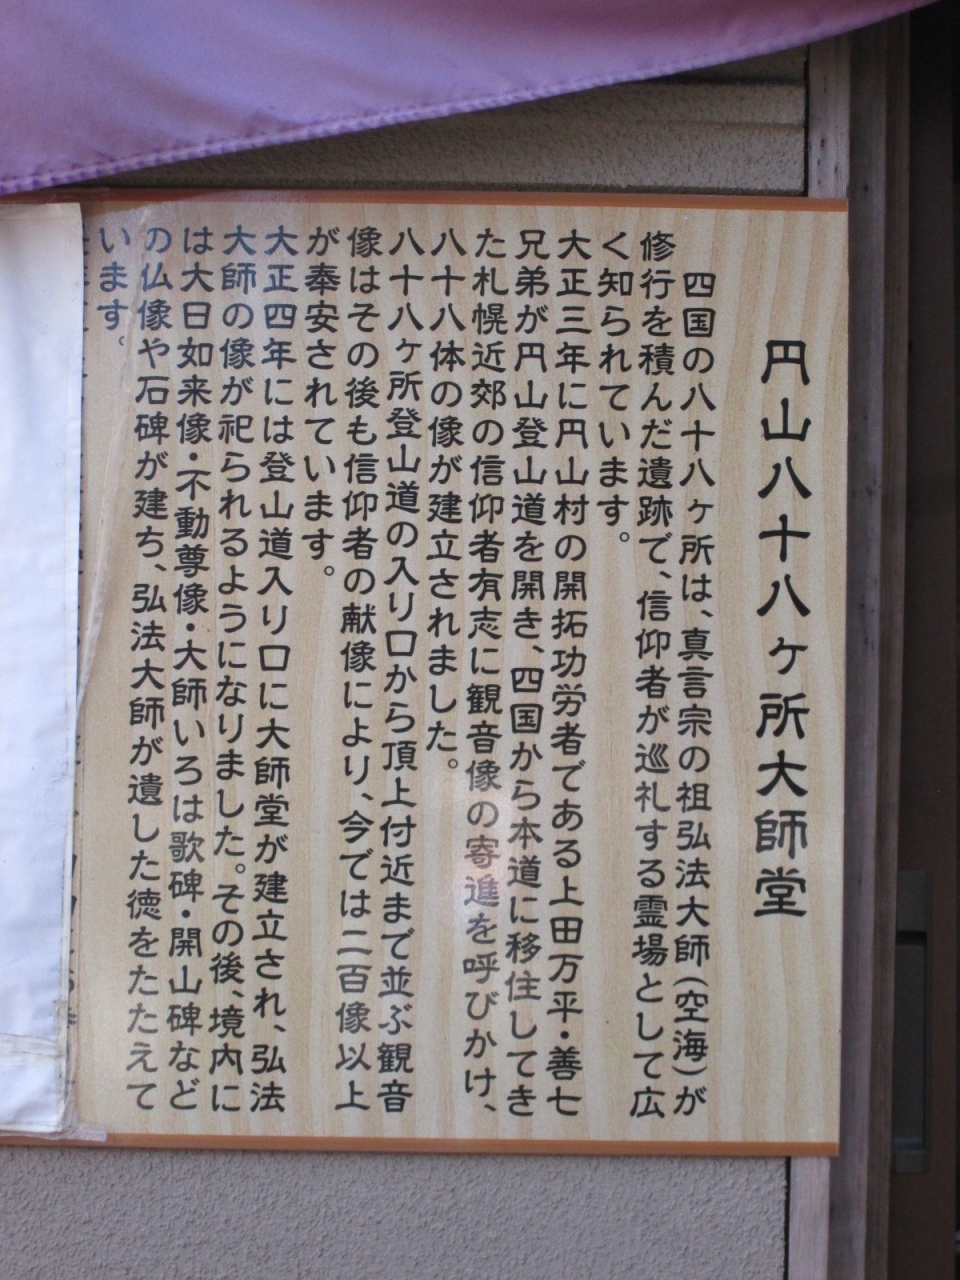 円山八十八ヶ所大師堂
四国の八十八ヶ所は、真言宗の祖弘法大師(空海)が
修行を積んだ遺跡で、信仰者が巡礼する霊場として広
く知られています。
大正三年に円山村の開拓功労者である上田万平・善七
兄弟が円山登山道を開き、四国から本道に移住してき
た札幌近郊の信仰者有志に観音像の寄進を呼びかけ、
八十八体の像が建立されました。
八十八ヶ所登山道の入り口から頂上付近まで並ぶ観音
像はその後も信仰者の献像により、今では二百像以上
が奉安されています。
大正四年には登山道入り口に大師堂が建立され、弘法
大師の像が祀られるようになりました。その後、境内に
は大日如来像・不動尊像・大師いろは歌碑・開山碑など
の仏像や石碑が建ち、弘法大師が遺した徳をたたえて
います。